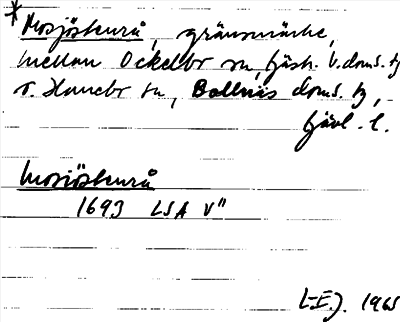 * Mosjöstenrå, gränsmärke,
mellan Ockelbo sn, Gästr. V. doms. tg
o. Hanebo sn, Bollnäs doms. tg,
Gävl. l.
Mosjöstenrå
1693 LSA V"
1965